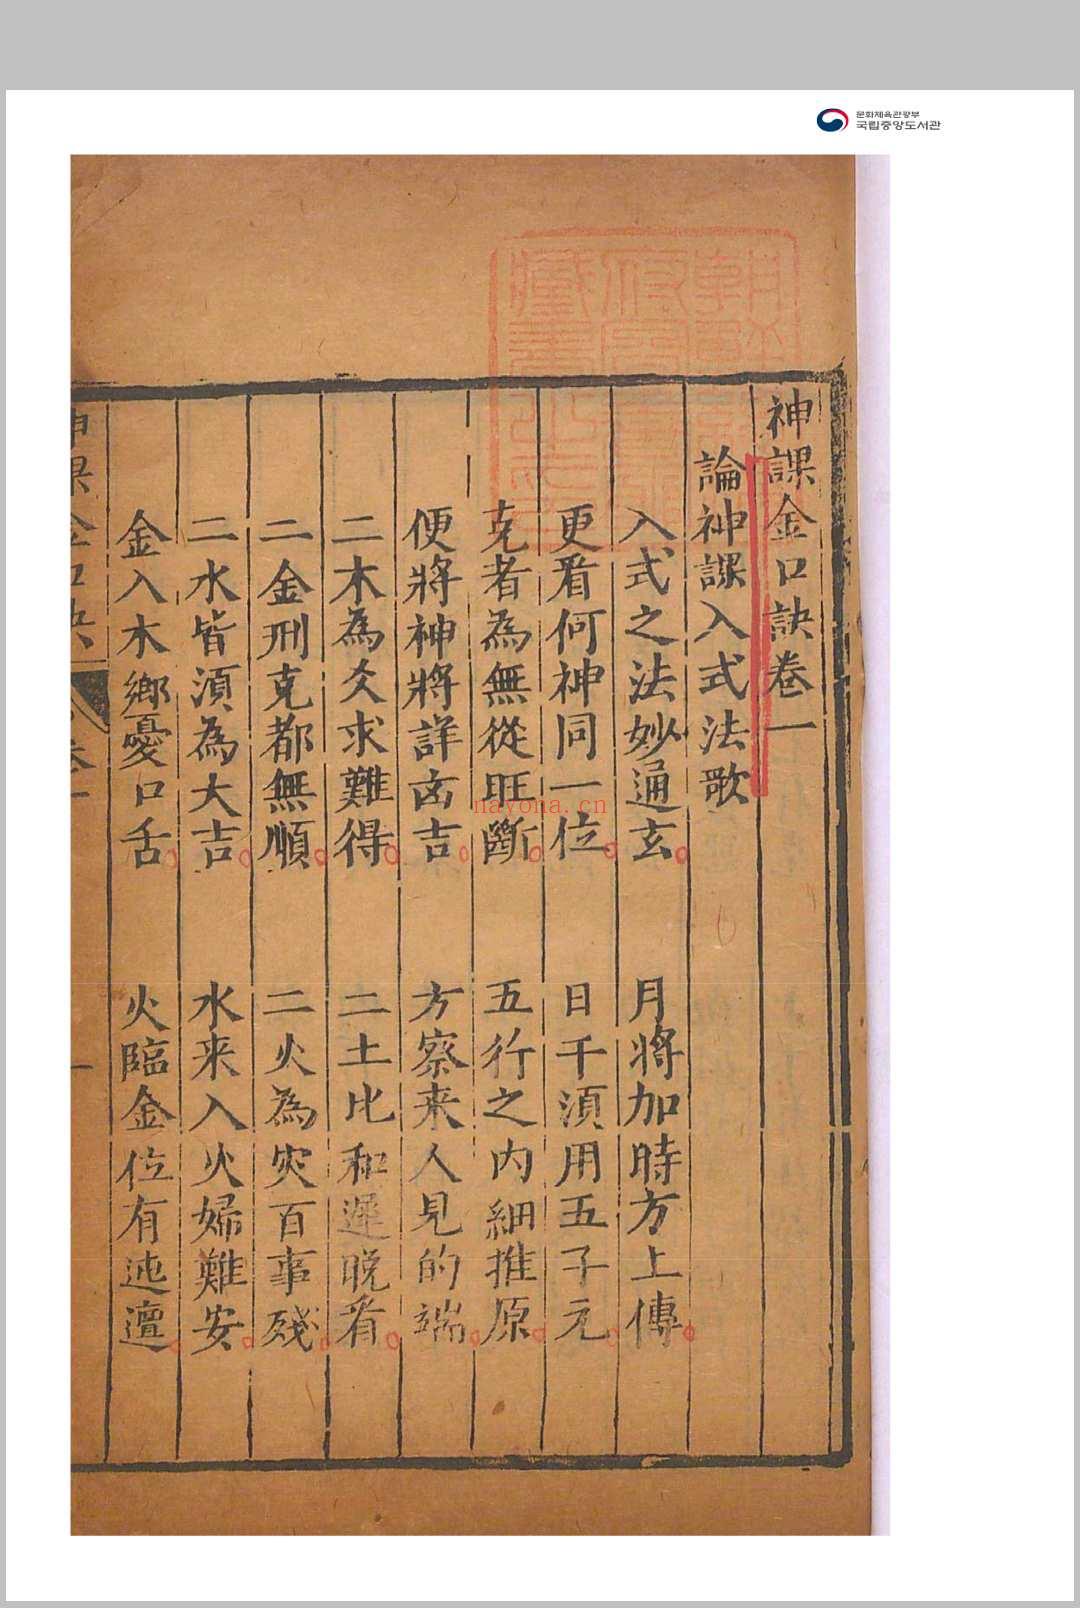 문화체육관광부
국립중앙도서관
神課金口訣卷一
論神課入式法歌
入式之法妙通玄 月將加時方上傳
更看何神同一位 日干須用五子元
克者為無從旺斷 五行之內細推原
便將神將詳凶吉 方察来人見的端
二木為爻求難得 二土比和遲晚看
二金刑克都無順 二火為灾百事殘
二水皆須為大吉 水来入火婦難安
金入木鄉憂口舌 火臨金位有迍邅
神課金口訣 卷一
一
nayona.cn